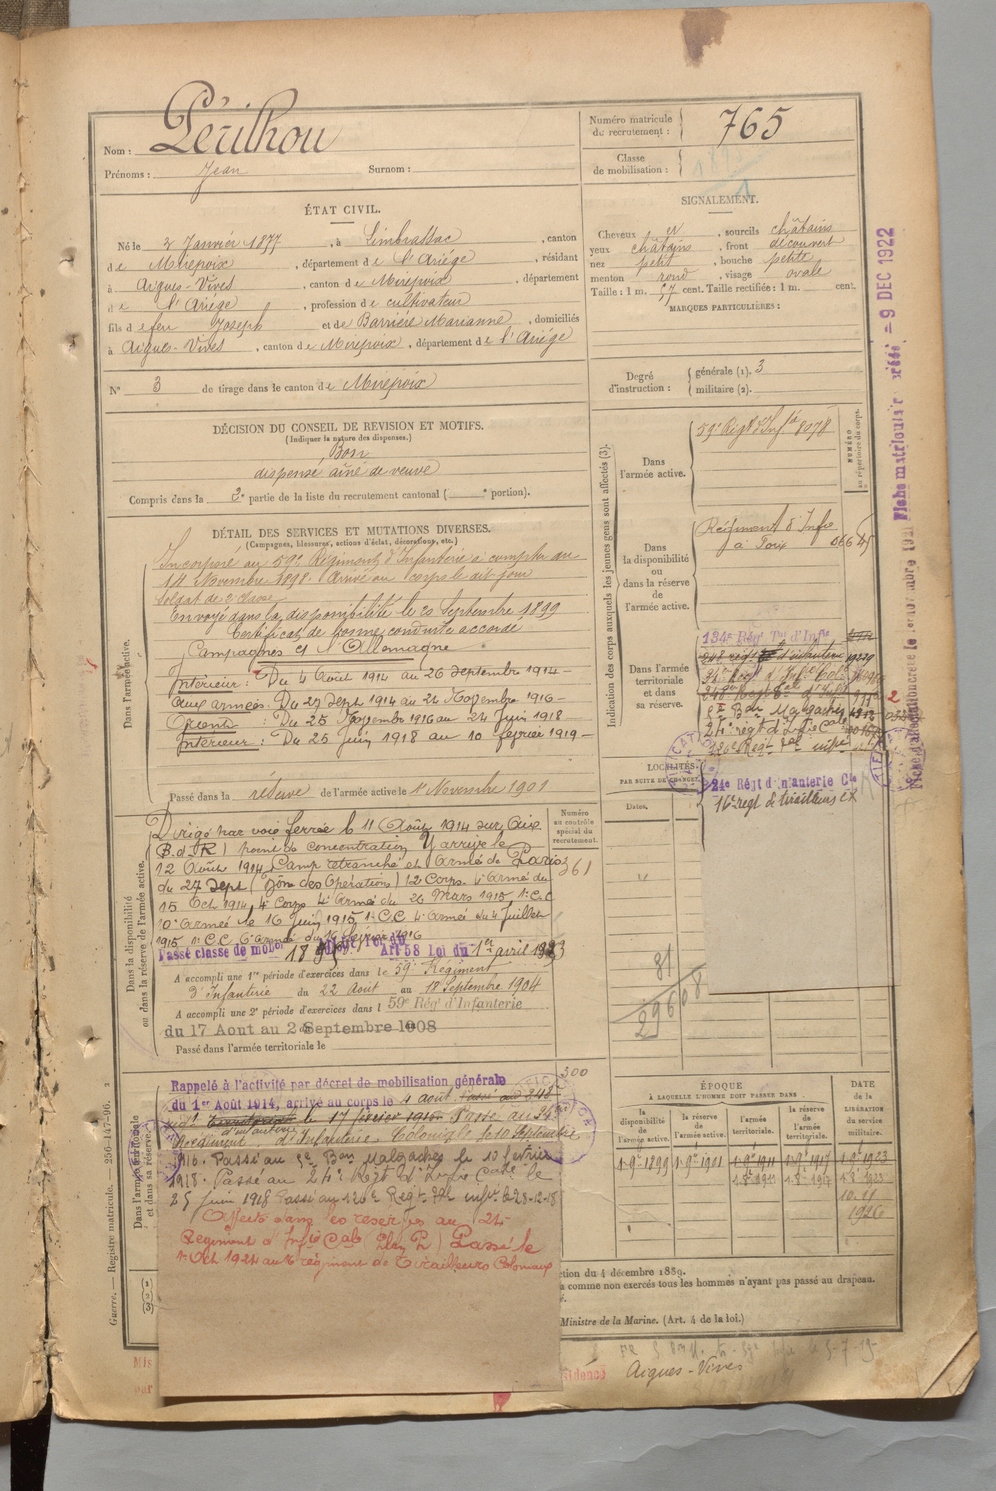 Nom : Périlhou
Prénoms : Jean Surnom :
Numéro matricule du recrutement : 765
Classe de mobilisation :
ÉTAT CIVIL.
Né le 2 Janvier 1877, à Limbrassac, canton
de Mirepoix, département de l'Ariège, résidant
à Aigues-Vives, canton de Mirepoix, département
de l'Ariège, profession de cultivateur
fils de feu Joseph et de Barrière Marianne, domiciliés
à Aigues-Vives, canton de Mirepoix, département de l'Ariège
SIGNALEMENT.
Cheveux et, sourcils châtains
yeux châtains, front découvert
nez petit, bouche petite
menton rond, visage ovale
Taille : 1 m. 57 cent. Taille rectifiée : 1 m. cent.
MARQUES PARTICULIÈRES :
N° 3 de tirage dans le canton de Mirepoix
Degré d'instruction : générale (1). 3
militaire (2).
DÉCISION DU CONSEIL DE REVISION ET MOTIFS.
(Indiquer la nature des dispenses.)
Bon
dispensé aîné de veuve
Compris dans la 2e partie de la liste du recrutement cantonal ( e portion).
DÉTAIL DES SERVICES ET MUTATIONS DIVERSES.
(Campagnes, blessures, actions d'éclat, décorations, etc.)
Dans l'armée active.
Incorporé au 59e Régiment d'Infanterie à compter du
14 Novembre 1898. Arrivé au corps le dit jour
Soldat de 2e classe
Envoyé dans la disponibilité le 20 Septembre 1899
Certificat de bonne conduite accordé
Campagnes c/ l'Allemagne
Intérieur : Du 4 Août 1914 au 26 Septembre 1914
aux armées : Du 27 Sept 1914 au 24 Novembre 1916
Orient : Du 25 Novembre 1916 au 24 Juin 1918
Intérieur : Du 25 Juin 1918 au 10 février 1919
Passé dans la réserve de l'armée active le 1er Novembre 1901
Dans la disponibilité ou dans la réserve de l'armée active.
Numéro au contrôle spécial du recrutement.
361
Dirigé par voie ferrée le 11 Août 1914 sur Aix
(B.d.R) point de concentration y arrive le
12 Août 1914 Camp retranché et Armée de Paris
du 27 Sept (Zône des Opérations) 12 Corps 4e Armée du
15 Oct 1914, 4e Corps 4e Armée du 26 Mars 1915 1er C.C
10e Armée le 16 Juin 1915, 1er C.C 4e Armée du 4 Juillet
1915 1er C.C. 6e Armée du
Passé classe de mob
Art 58 loi du 1er avril 1923
A accompli une 1re période d'exercices dans le 59e Régiment
d'Infanterie du 22 Août au 18 Septembre 1904
A accompli une 2e période d'exercices dans l 59e Rég d'Infanterie
du 17 Aout au 2 Septembre 1908
Passé dans l'armée territoriale le
Dans l'armée territoriale et dans sa réserve.
Rappelé à l'activité par décret de mobilisation générale
du 1er Août 1914, arrivé au corps le 4 août. Passé au 248
régt d'infanterie le 17 février 1916 Passé au 24e
Régiment d'Infanterie Coloniale le 10 Septembre
1916. Passé au 5e Bon Malgaches le 10 février
1918. Passé au 24e Régt d'Infie Cale le
25 Juin 1918 Passé au 126e Régt Tal infie le 28-12-18
Affecté dans les réserves au 24e
Régiment d'Infie Cale Passé le
1er Oct 1924 au 16e régiment de Tirailleurs Coloniaux
Indication des corps auxquels les jeunes gens sont affectés (3).
NUMÉRO au répertoire du corps.
Dans l'armée active.
59e Régt d'Infie 8078
Dans la disponibilité ou dans la réserve de l'armée active.
Régiment d'Infie
à Foix
Dans l'armée territoriale et dans sa réserve.
134e Régt Tal d'Infie
248 régt d'infanterie
5e Bon Malgaches
24e régt d'Infie Cale
126e Régt Tal infie
24e Régt d'Infanterie Cle
16e régt de tirailleurs cx
LOCALITÉS
PAR SUITE DE CHANGE
Dates.
81
29608
300
ÉPOQUE
À LAQUELLE L'HOMME DOIT PASSER DANS
la disponibilité de l'armée active.
la réserve de l'armée active.
l'armée territoriale.
la réserve de l'armée territoriale.
DATE de la LIBÉRATION du service militaire.
1-9bre 1899 1-9bre 1901 1-9bre 1911 1-9bre 1917 1-9bre 1923
1-8bre 1911 1-8bre 1917 1-8bre 1923
10.11
1926
ction du 4 décembre 1889.
à comme non exercés tous les hommes n'ayant pas passé au drapeau.
Ministre de la Marine. (Art. 4 de la loi.)
Aigues-Vives
Guerre. — Registre matricule. — 256-147-96.
Fiche matriculaire créée - 9 DEC 1922